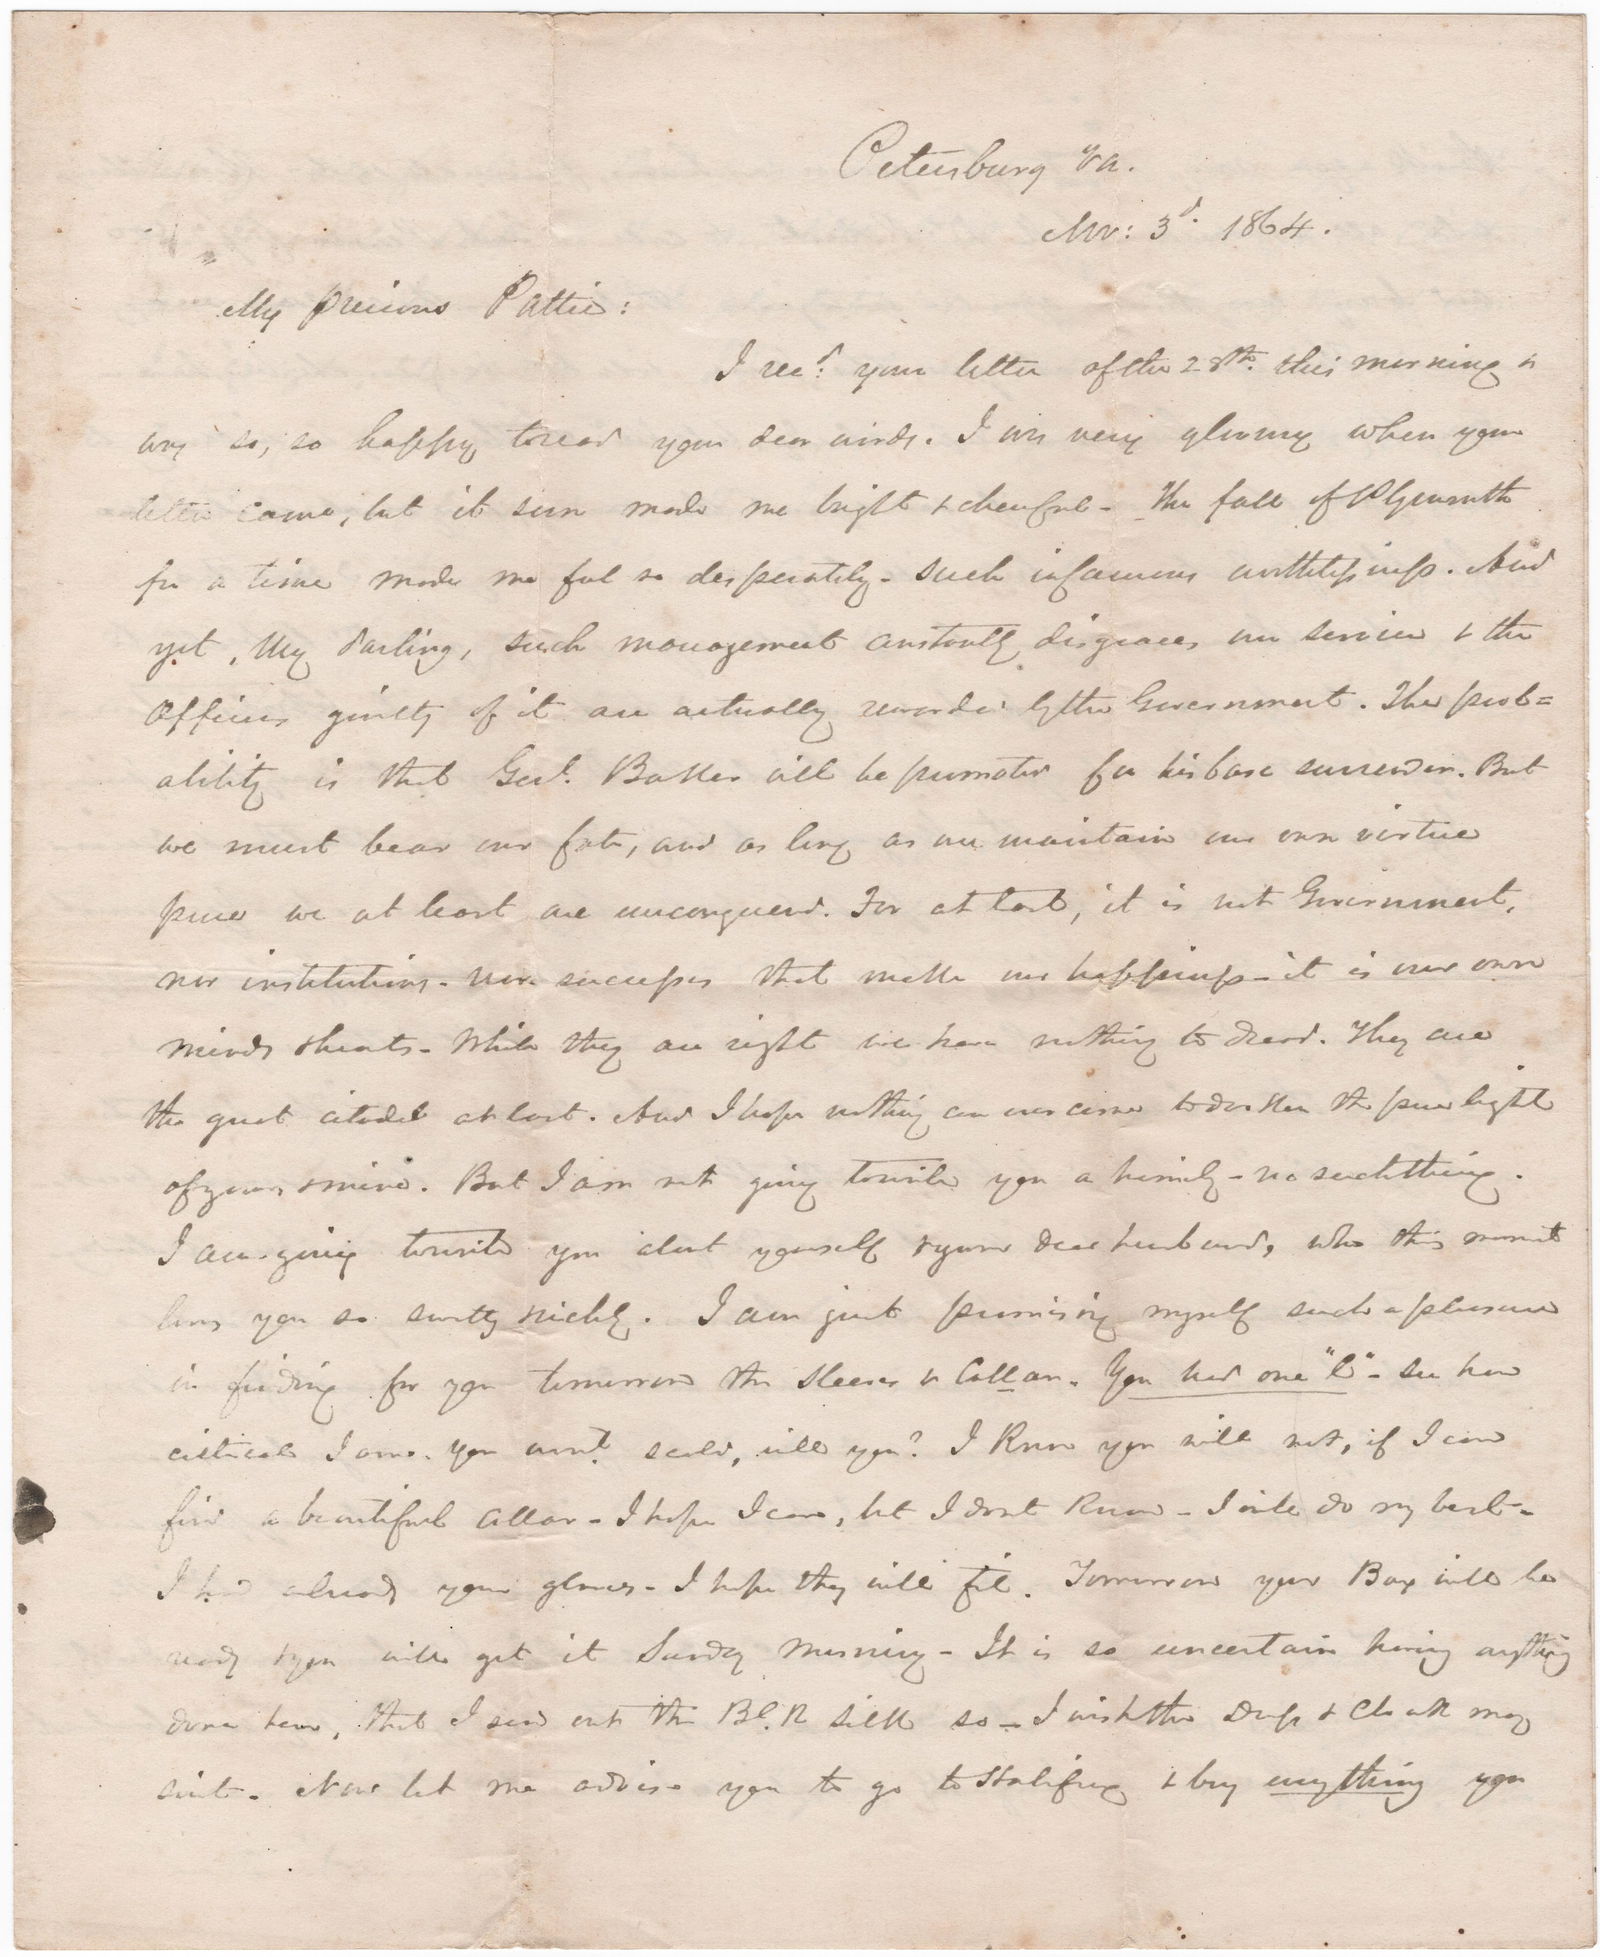 Petersburg Va.
Nov: 3d. 1864.
My precious Pattie:
I recd. your letter of the 28th. this morning &
was so, so happy to read your dear words. I was very gloomy when your
letter came, but it soon made me bright & cheerful - The fall of Plymouth
for a time made me feel so desperately - such infamous worthlessness. And
yet, My darling, such management constantly disgraces our service & the
Officers guilty of it are actually rewarded by the Government. The prob=
ability is that Genl. Baker will be promoted for his base surrender. But
we must bear our fate, and as long as we maintain our own virtue
pure we at least are unconquered. For at last, it is not Government,
nor institutions - nor successes that make our happiness - it is our own
minds & hearts - While they are right we have nothing to dread. They are
the great citadel at last. And I hope nothing can ever come to darken the pure light
of yours & mine. But I am not going to write you a homily - no such thing.
I am going to write you about yourself & your dear husband, who this moment
loves you so sweetly & richly. I am just promising myself such a pleasure
in finding for you tomorrow the sleeves & Collar. You had one "l" - see how
critical I am. You wont scold, will you? I Know you will not, if I can
find a beautiful collar - I hope I can, but I dont Know - I will do my best -
I have already your gloves - I hope they will fit. Tomorrow your Box will be
ready & you will get it Sunday Morning - It is so uncertain having anything
done here, that I send out the Bl.k silk so - I wish the dress & Cloak may
suit - Now let me advise you to go to Halifax & buy anything you